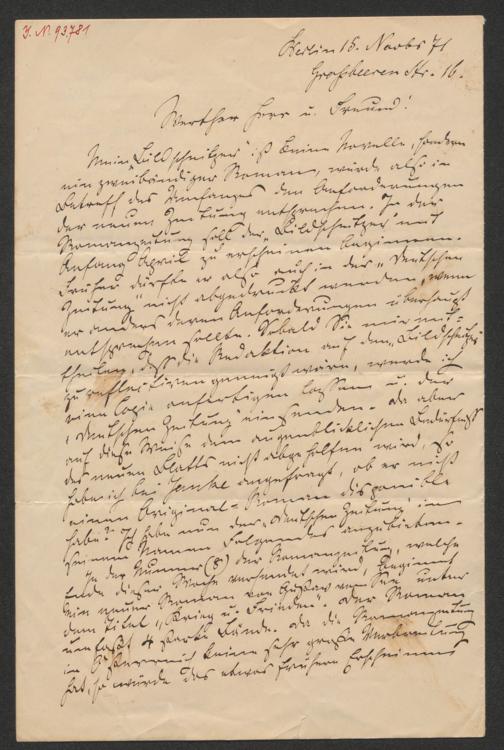 I. N. 93.781
Berlin 15. Novbr 71
Großbeeren Str. 16.
Werther Herr u. Freund!
Mein "Bildschnitzer" ist keine Novelle, sondern
ein zweibändiger Roman, würde also in
Betreff des Umfanges den Anforderungen
der neuen Zeitung entsprechen. In der
Romanzeitung soll der "Bildschnitzer" mit
Anfang April zu erscheinen beginnen.
Früher dürfte er also auch in der "Deutschen
Zeitung" nicht abgedruckt werden, wenn
er anders deren Anforderungen überhaupt
entsprechen sollte. Sobald Sie mir mit-
theilen, daß die Redaktion auf den "Bildschnitzer"
zu reflectiren geneigt wäre, werde ich
eine Copie anfertigen lassen u. der
"Deutschen Zeitung" einsenden. Da aber
auf diese Weise dem augenblicklichen Bedürfniß
des neuen Blatts nicht abgeholfen wird, so
habe ich bei Janke angefragt, ob er nicht
einen Original-Roman disponible
habe? Ich habe nun der "Deutschen Zeitung" in
seinem Namen Folgendes anzubieten.
In der Nummer (8) der Romanzeitung, welche
Ende dieser Woche versendet wird, beginnt
ein neuer Roman von Gustav vom See unter
dem Titel "Krieg u. Frieden". Der Roman
umfaßt 4 starke Bände. Da die Romanzeitung
in Österreich keine sehr große Verbreitung
hat, so würde das etwas frühere Erscheinen